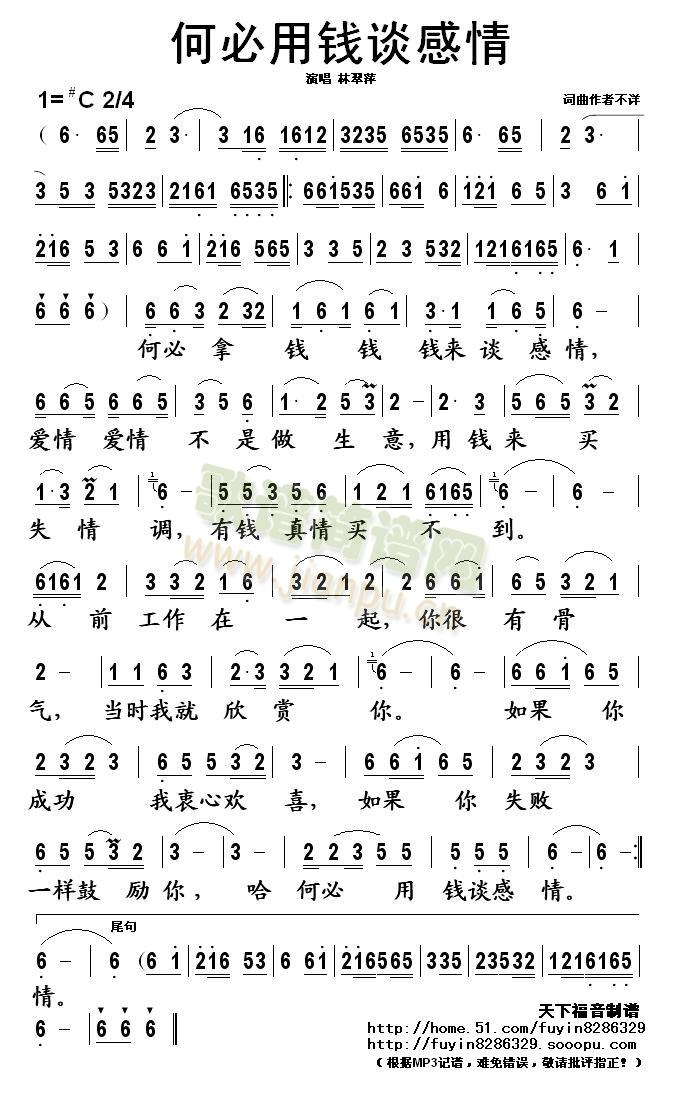 何必用钱谈感情
演唱 林翠萍
1= #C 2/4
词曲作者不详
( 6· 65 | 2 3· | 3 16 1612 | 3235 6535 | 6· 65 | 2 3· |
3 5 3 5323 | 2161 6535 |: 661535 | 661 6 | 121 6 5 | 3 6 1 |
216 5 3 | 6 6 1 | 216 565 | 3 3 5 | 2 3 532 | 1216165 | 6· 1 |
6 6 6 ) | 6 6 3 2 32 | 1 6 1 6 1 | 3·1 1 6 5 | 6 – |
何必 拿 钱 钱 钱来 谈 感 情,
6 6 5 6 6 5 | 4 5 2 6 | 1· 2 5 3 | 2 – | 2· 3 | 5 6 5 3 2 |
爱情 爱情 不 是 做 生 意, 用 钱 来 买
1·3 2 1 | 6 – | 5 5 3 5 6 | 1 2 1 6165 | 6 – | 6 – |
失 情 调, 有钱 真情 买 不 到。
6161 2 | 3 3 2 1 6 | 3 2 1 2 | 2 6 6 1 | 6 5 3 2 3 |
从 前 工作 在 一 起, 你很 有 骨
2 – | 1 1 6 3 | 2·3 3 2 1 | 6 – | 6 – | 6 6 1 6 5 |
气, 当时我就 欣 赏 你。 如果 你
2 3 2 3 | 6 5 5 3 2 | 3 – | 6 6 1 6 5 | 2 3 2 3 |
成功 我衷心欢 喜, 如果 你 失败
6 5 5 3 2 | 3 – | 3 – | 2 2 3 5 5 | 5 5 5 | 6 – | 6 – :|
一样鼓 励你, 哈 何必 用 钱谈感 情。
尾句
6 – | 6 (6 1 | 216 53 | 6 61 | 216565 | 335 | 23532 | 1216165 |
情。
6 – | 6 6 6 ‖
天下福音制谱
http://home.51.com/fuyin8286329
http://fuyin8286329.sooopu.com
（根据MP3记谱，难免错误，敬请批评指正！）
歌谱简谱网
www.jianpu.cn